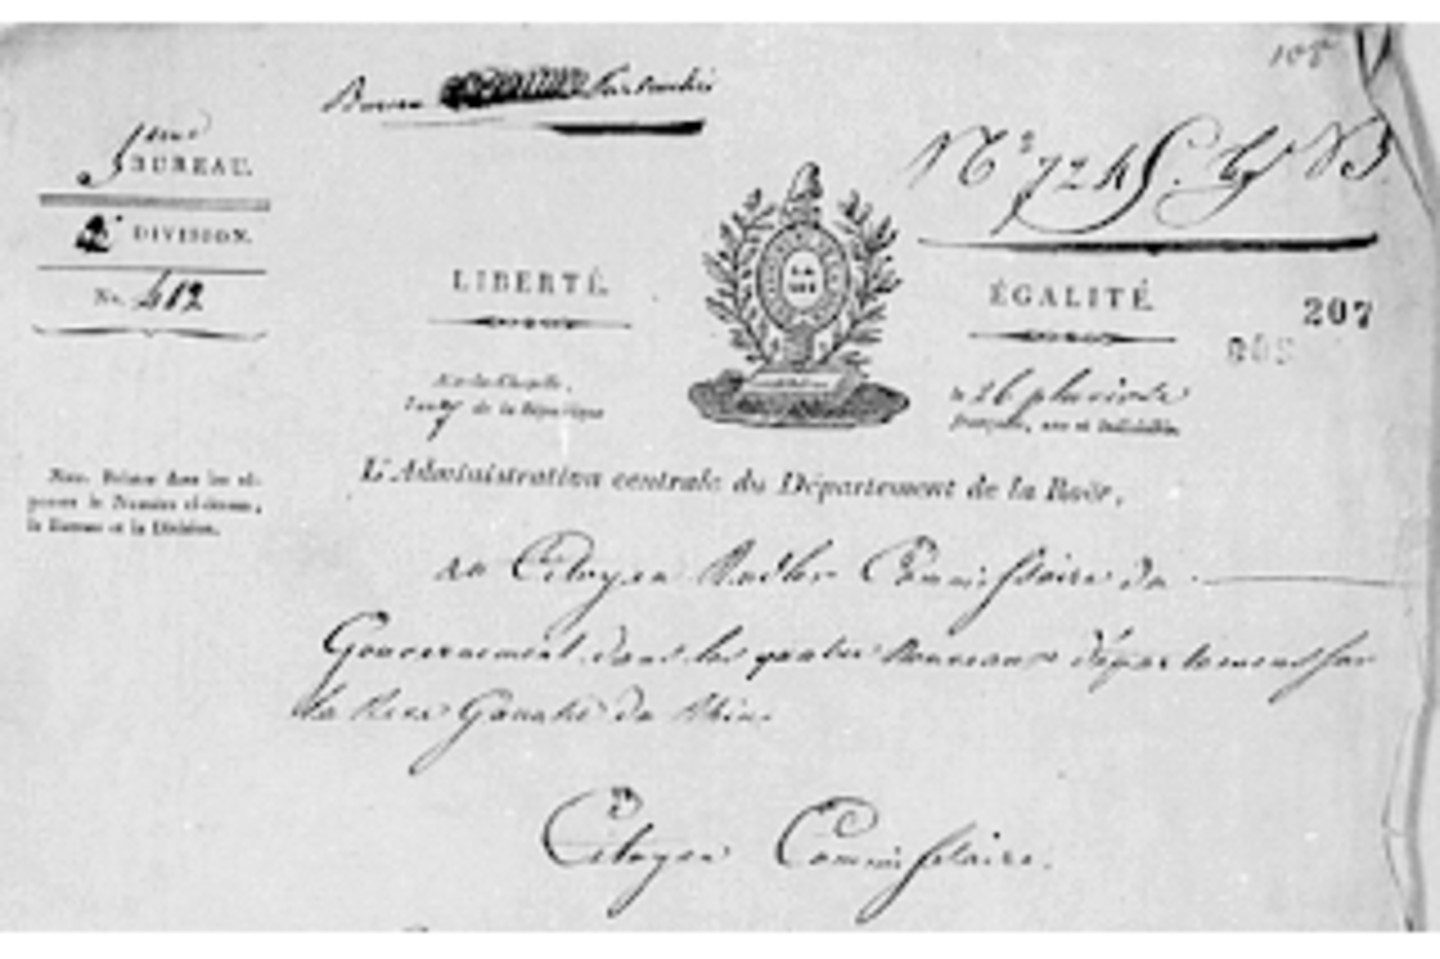 108
Bureau
5eme BUREAU.
N° 724 S.
2e DIVISION.
No. 412
LIBERTÉ.
LA
LOI
ÉGALITÉ.
207
Aix-la-Chapelle,
le 26 pluviose
de la République
française, une et indivisible.
Nota. Relater dans les ré-
ponses le Numéro ci-dessus,
le Bureau et la Division.
L'Administration centrale du Département de la Roër,
au Citoyen Rudler Commissaire du
Gouvernement dans les quatre Nouveaux départemens sur
la Rive Gauche du Rhin.
Citoyen Commissaire.